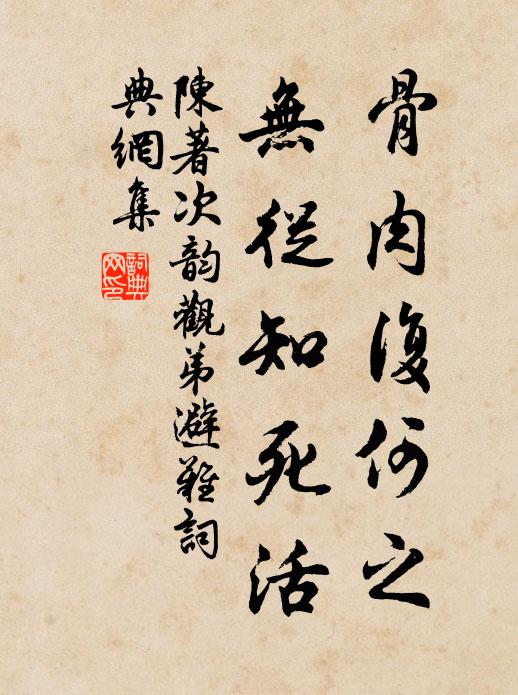 骨肉復何之
無從知死活
陳著次韵觀弟避難詞
典網集
詞典網印